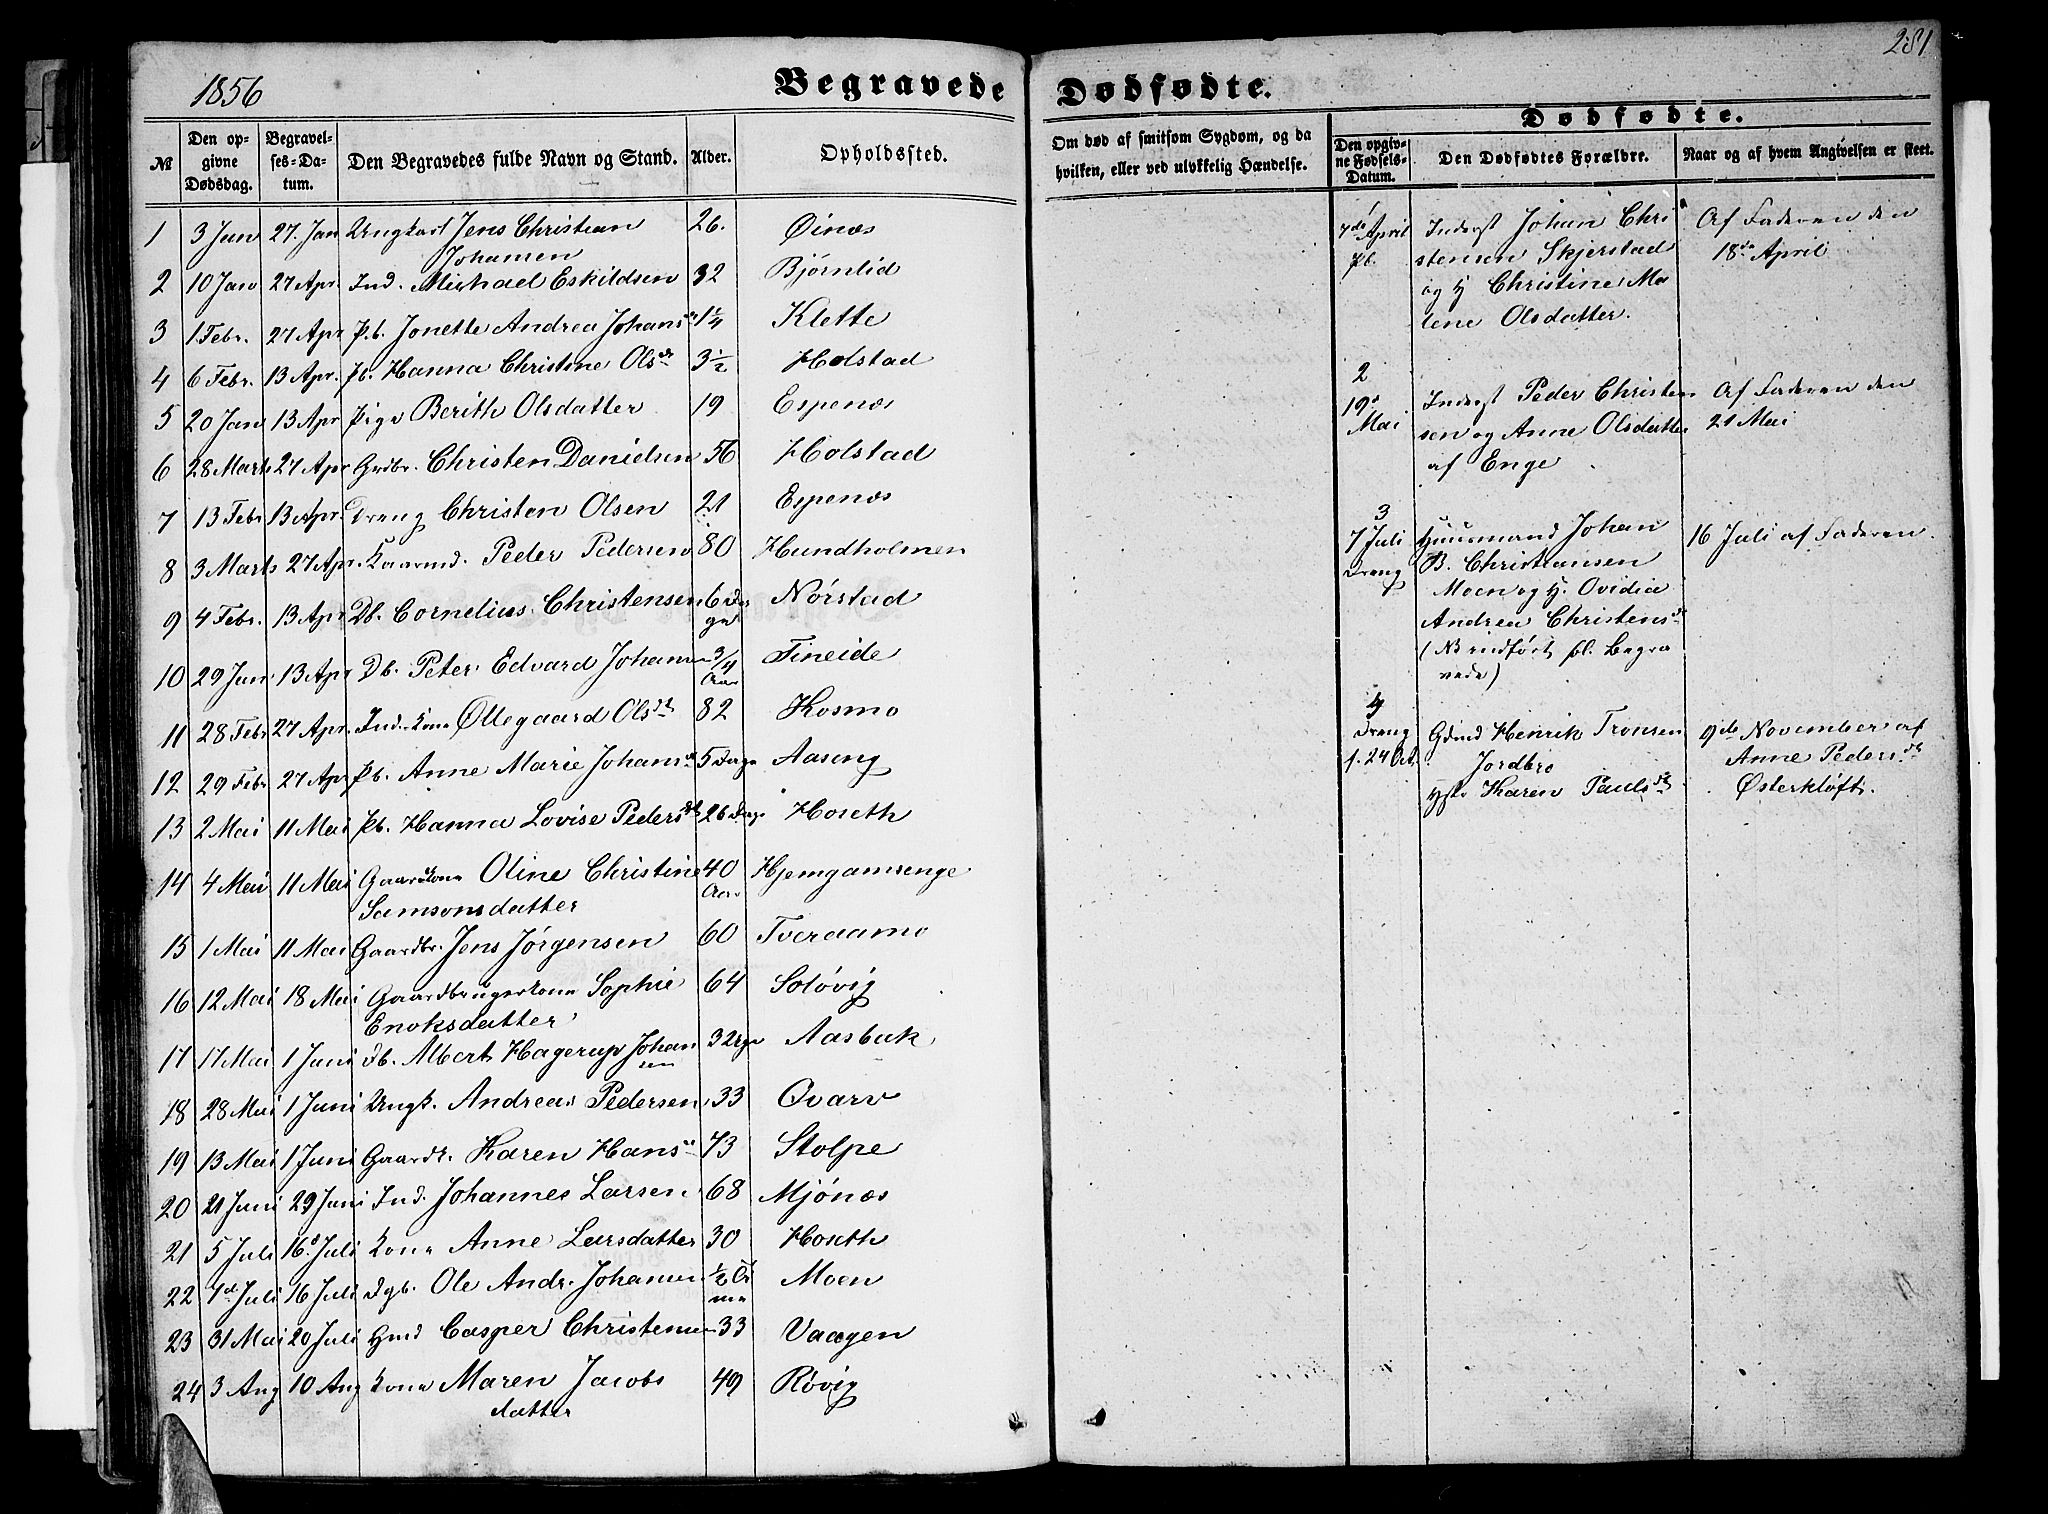 1856
Begravede
№
Den op-
givne
Dødsdag.
Begravel-
ses-Da-
tum.
Den Begravedes fulde Navn og Stand.
Alder.
Opholdssted.
1 3 Jan 27. Jan Ungkarl Jens Christian 26. Øinæs
Johansen
2 10 Jan 27 Apr. Ind. Michael Eskildsen 32 Bjørnlid
3 1 Febr. 27 Apr Pb. Jonette Andrea Johans 1¼ Klette
4 6 Febr. 13 Apr. Pb. Hanna Christine Olsdr 3½ Holstad
5 20 Jan 13 Apr Pige Berith Olsdatter 19 Espenæs
6 28 Marts 27 Apr Grdbr. Christen Danielsen 56 Holstad
7 13 Febr 13 Apr. Dreng Christen Olsen 21 Espenæs
8 3 Marts 27 Apr. Kaarmd. Peder Pedersen 80 Hundholmen
9 4 Febr. 13 Apr Db. Cornelius Christensen 6 Da
ge Nørstad
10 29 Jan 13 Apr Db. Peter Edvard Johansen 3/4
Aar Fineide
11 28 Febr 27 Apr. Ind. Kone Øllegaard Olsdt 82 Kosmo
12 29 Febr 27 Apr Pb. Anne Marie Johansdr 5 Dage Aaseng
13 2 Mai 11 Mai Pb. Hanna Lovise Pedersdtr 26 Dage Hoseth
14 4 Mai 11 Mai Gaardkone Oline Christine 40
Aar Hjemgamsenge
Samsonsdatter
15 1 Mai 11 Mai Gaardbr. Jens Jørgensen 60 Tveraamo
16 12 Mai 18 Mai Gaardbrugerkone Sophie 64 Soløvig
Enoksdatter
17 17 Mai 1 Juni Db. Albert Hagerup Johan
sen Aasbak
18 28 Mai 1 Juni Ungk. Andreas Pedersen 33 Qvarv
19 13 Mai 1 Juni Karen Hans 73 Stolpe
20 21 Juni 29 Juni Ind. Johannes Larsen 68 Mjønæs
21 5 Juli 16 Juli Kone Anne Larsdatter 30 Hoseth
22 7d Juli 16 Juli Dgb. Ole Andr. Johansen ½ Ti
me Moen
23 31 Mai 20 Juli Hmd Casper Christensen 33 Vaagen
24 3 Aug 10 Aug Kone Maren Jacobs 49 Røvig
datter
281
Dødfødte.
Om død af smitsom Sygdom, og da
hvilken, eller ved ulykkelig Hændelse.
Dødfødte.
Den opgiv-
ne Fødsels-
Datum.
Den Dødfødtes Forældre.
Naar og af hvem Angivelsen er skeet.
1
7de April
Pb.
Inderst Johan Chri
stensen Skjerstad
og H Christine Ma
lene Olsdatter.
Af Faderen den
18de April
2
19d
Mai
Inderst Peder Christen
sen og Anne Olsdatter
af Enge
Af Faderen den
21 Mai
3
7 Juli
Dreng
Huusmand Johan
B. Christiansen
Moen og H. Ovidia
Andrea Christensdr
(NB indført bl. Begra
vede)
16 Juli af Faderen.
4
Dreng
f. 24 Oct.
Gdmd Henrik Tronsen
Jordbro
Hstr Karen Paulsdtr
9de November af
Anne Pedersdtr
Østerkløft.